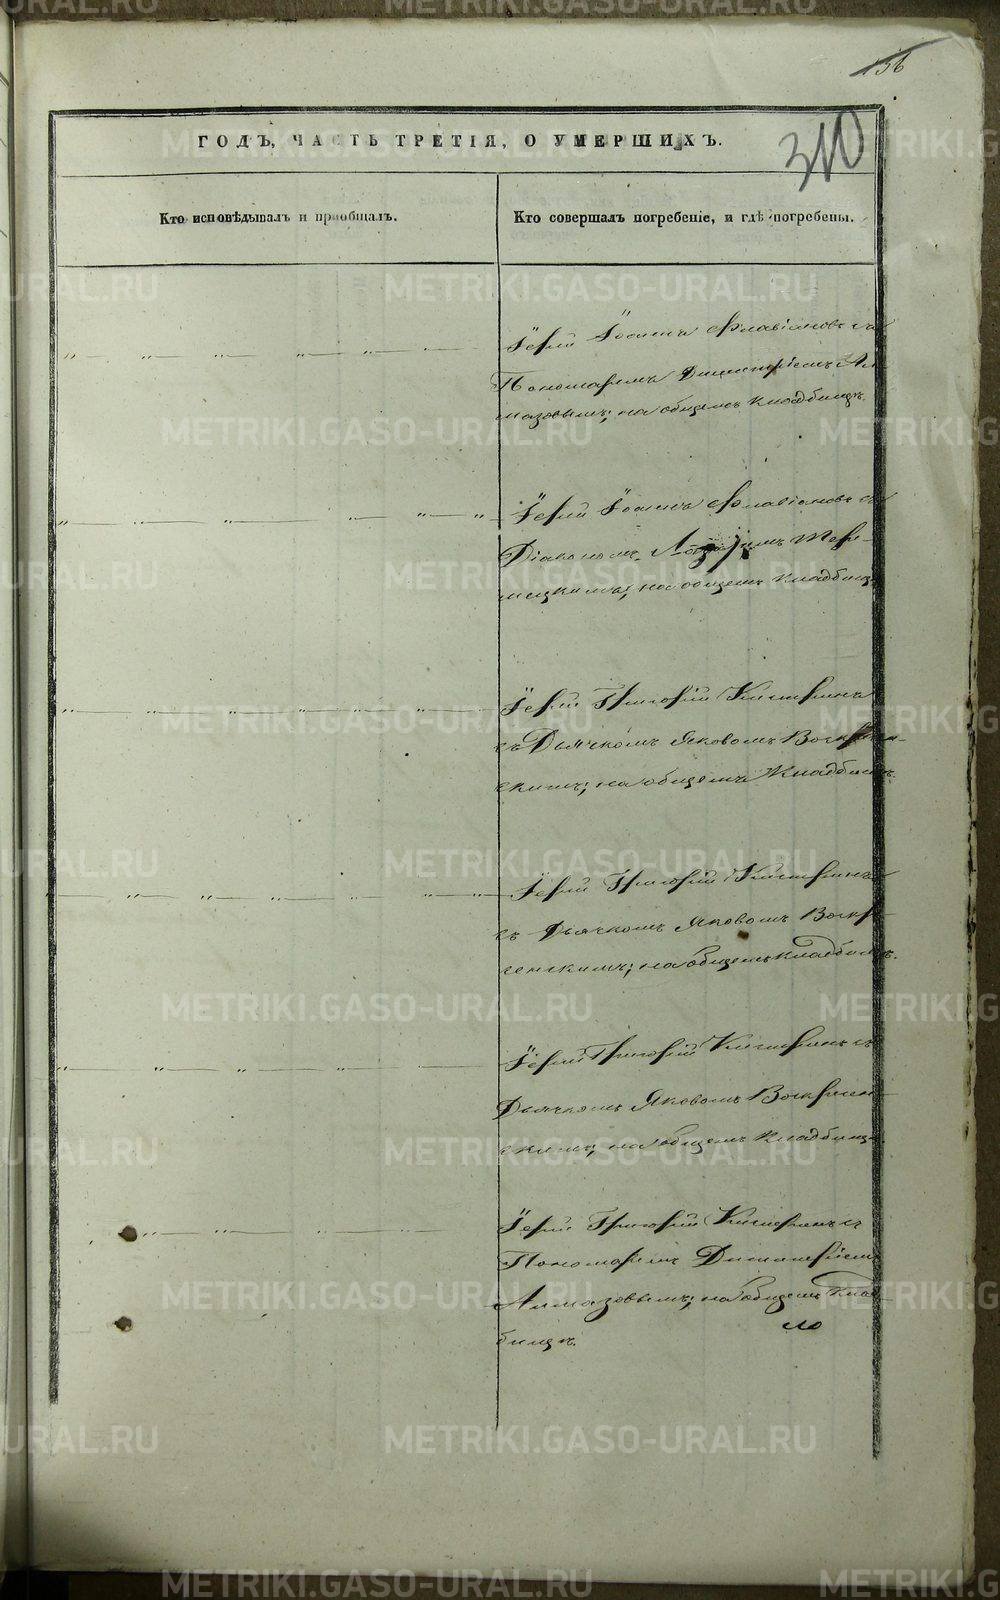 156
310
ГОДЪ, ЧАСТЬ ТРЕТІЯ, О УМЕРШИХЪ.
Кто исповѣдывалъ и пріобщалъ.
Кто совершалъ погребеніе, и гдѣ погребены.
Іерей Іоаннъ Флавіановъ съ
Пономаремъ Димитріемъ Ал
мазовымъ; на общемъ кладбищѣ.
Іерей Іоаннъ Флавіановъ съ
Діакономъ
на общемъ кладбищѣ
Іерей Григорій
съ Дьячкомъ Яковомъ Воскресен-
скимъ; на общемъ кладбищѣ.
Іерей Григорій
съ Дьячкомъ Яковомъ Воскре-
сенскимъ; на общемъ кладбищѣ.
Іерей Григорій съ
Дьячкомъ Яковомъ Воскресен-
скимъ; на общемъ кладбищѣ.
Іерей Григорій съ
Пономаремъ Димитріемъ
Алмазовымъ; на общемъ клад-
бищѣ.
METRIKI.GASO-URAL.RU